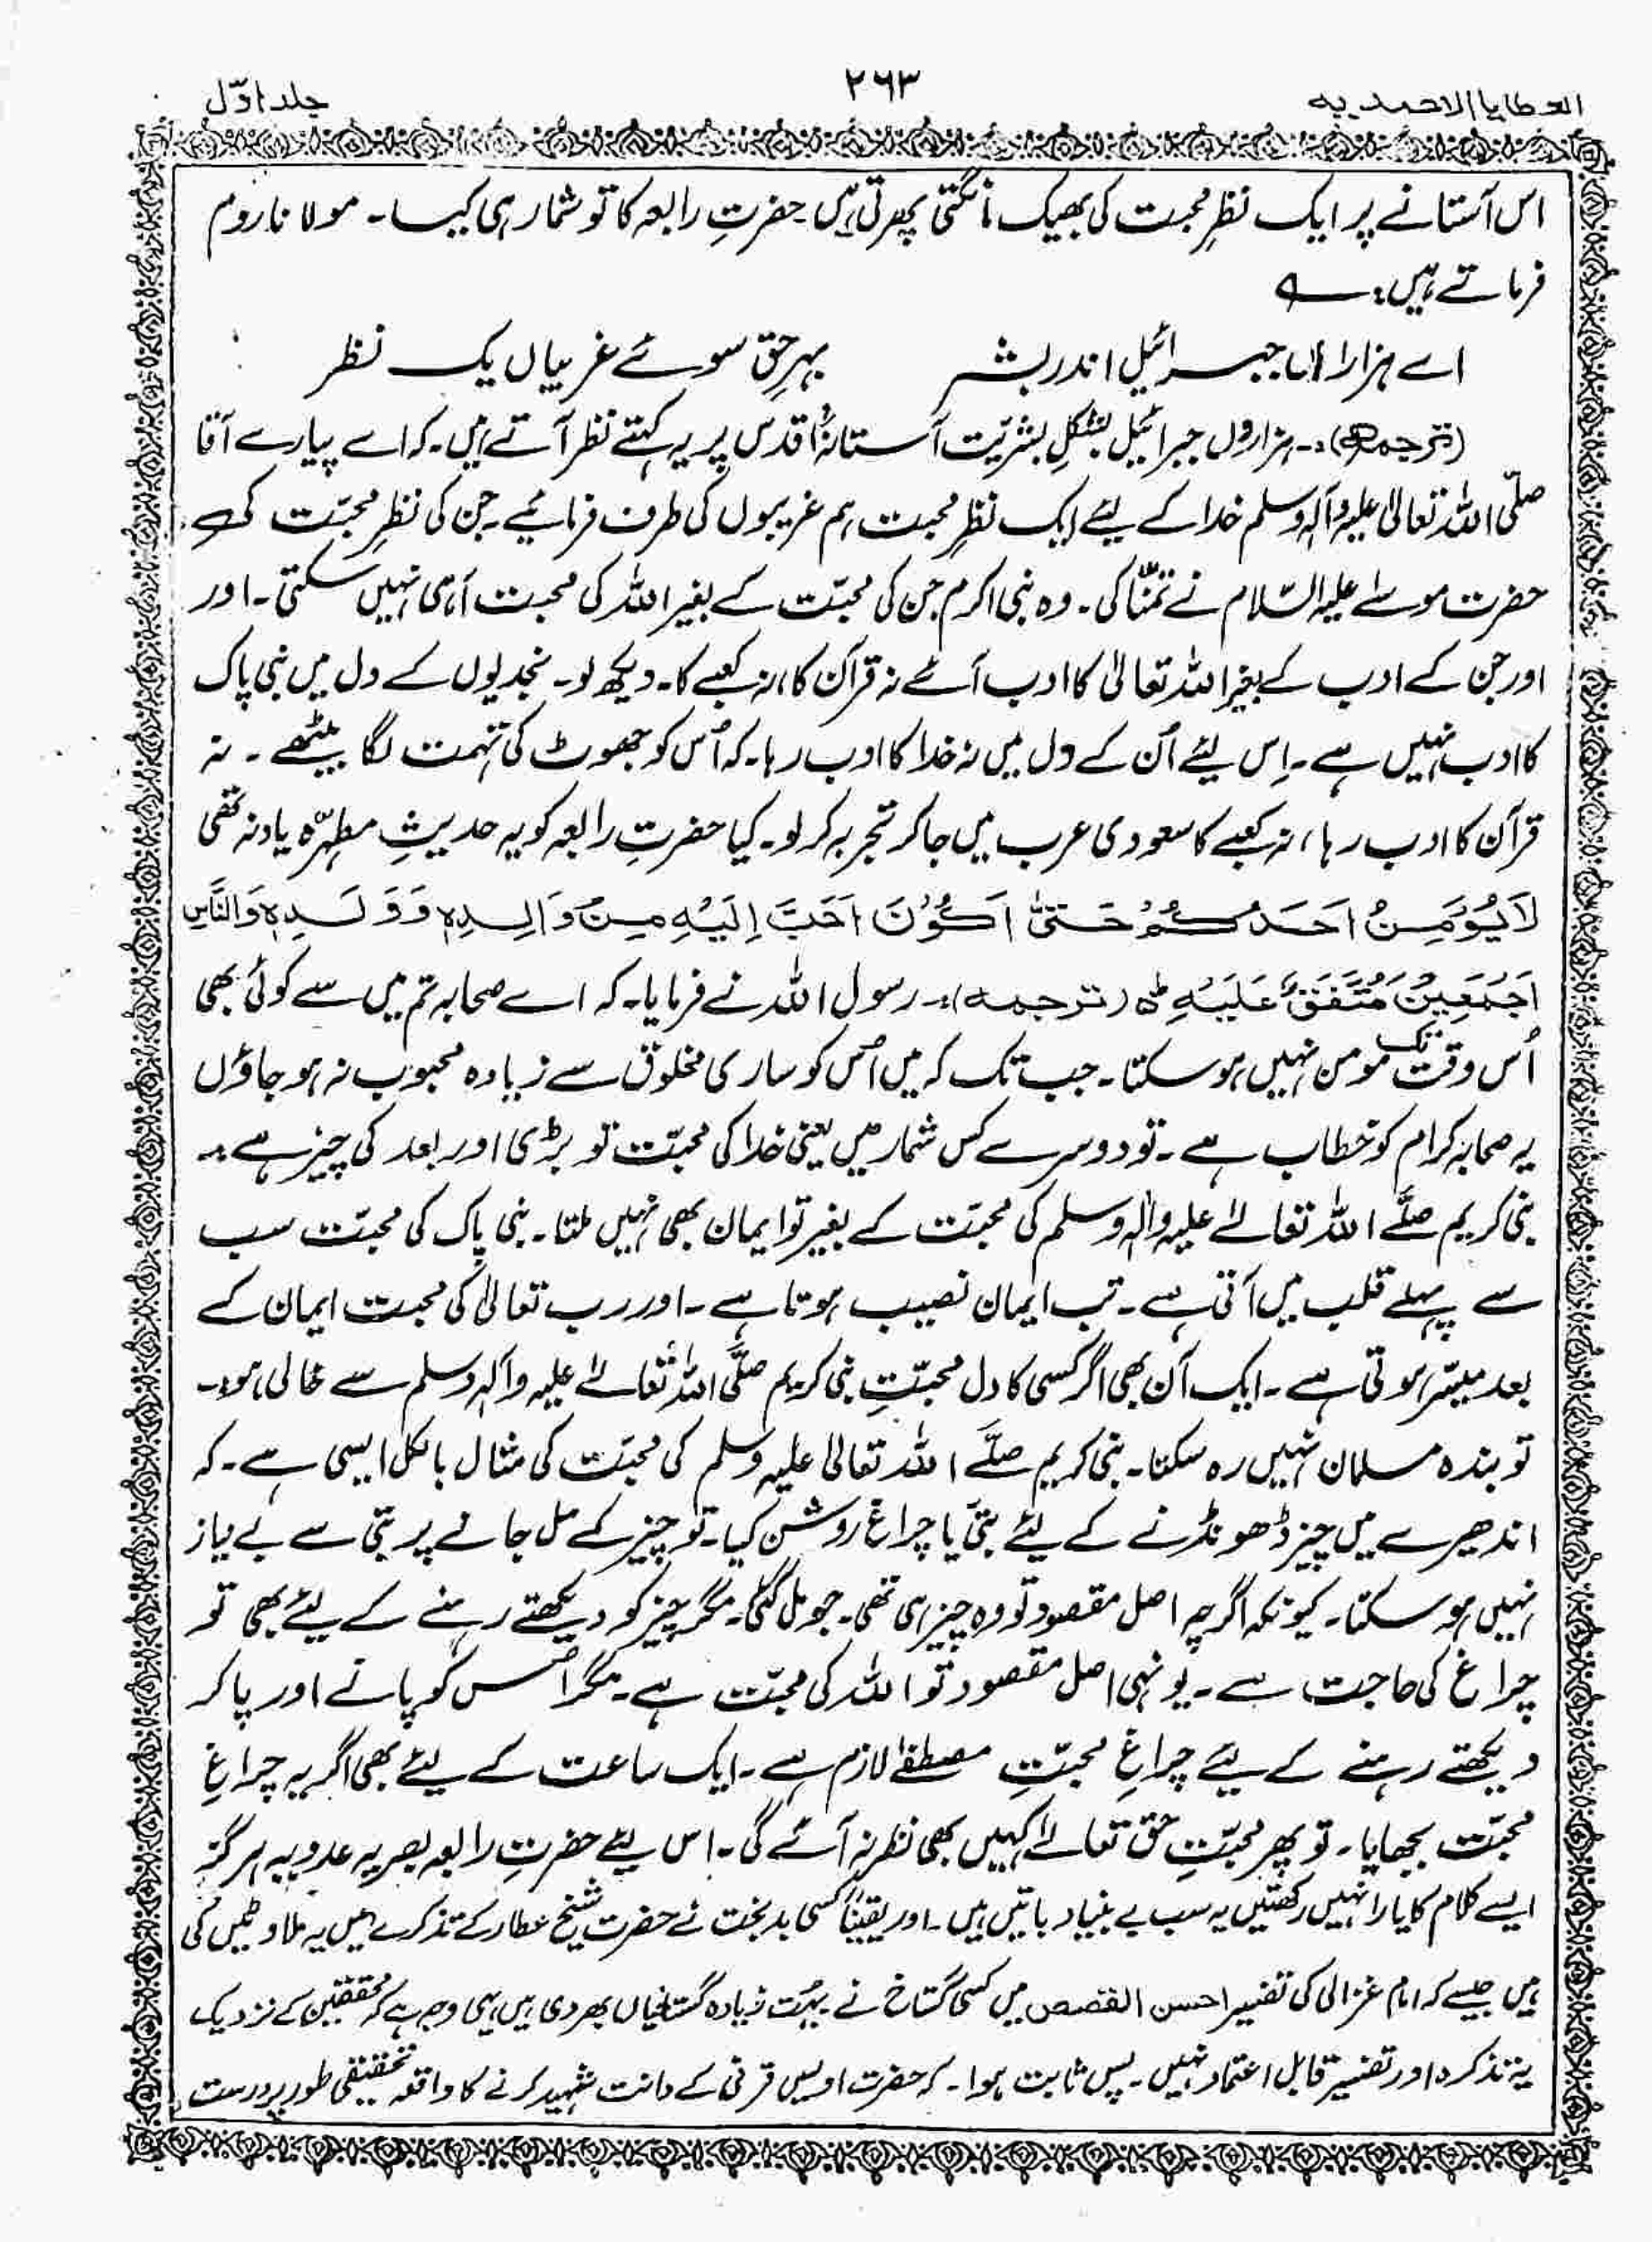 العطایا الاحمدیہ
۲۶۳
جلد اوّل
اس آستانے پر ایک نظرِ محبت کی بھیک مانگتی پھرتی ہیں۔ حضرتِ رابعہ کا تو شمار ہی کیا۔ مولانا روم
فرماتے ہیں:۔ ؎
اے ہزاراں جبرائیل اندر بشر بہرِ حق سوئے غریباں یک نظر
(ترجمہ):۔ ہزاروں جبرائیل بشکلِ بشریّت آستانۂ اقدس پر یہ کہتے نظر آتے ہیں۔ کہ اے پیارے آقا
صلّی اللہ تعالیٰ علیہ وآلہٖ وسلم خدا کے لیئے ایک نظرِ محبت ہم غریبوں کی طرف فرمائیے۔ جن کی نظرِ محبّت کی
حضرت موسےٰ علیہ السّلام نے تمنّا کی۔ وہ نبی اکرم جن کی محبّت کے بغیر اللہ کی محبت آہی نہیں سکتی۔ اور
اور جن کے ادب کے بغیر اللہ تعالیٰ کا ادب آئے نہ قرآن کا، نہ کعبے کا۔ دیکھ لو۔ نجدیوں کے دل میں نبی پاک
کا ادب نہیں ہے۔ اِس لیئے اُن کے دل میں نہ خدا کا ادب رہا۔ کہ اُس کو جھوٹ کی تہمت لگا بیٹھے۔ نہ
قرآن کا ادب رہا، نہ کعبے کا سعودی عرب میں جا کر تجربہ کر لو۔ کیا حضرتِ رابعہ کو یہ حدیثِ مطہرّہ یاد نہ تھی
لَا یُؤْمِنُ اَحَدُکُمْ حَتّٰی اَکُوْنَ اَحَبَّ اِلَیْہِ مِنْ وَالِدِہٖ وَوَلَدِہٖ وَالنَّاسِ
اَجْمَعِیْنَ مُتَّفَقٌ عَلَیْہِ ط (ترجمہ)۔ رسول اللہ نے فرمایا۔ کہ اے صحابہ تم میں سے کوئی بھی
اُس وقت تک مومن نہیں ہو سکتا۔ جب تک کہ میں اُس کو ساری مخلوق سے زیادہ محبوب نہ ہو جاؤں
یہ صحابہ کرام کو خطاب ہے۔ تو دوسرے کس شمار میں یعنی خدا کی محبّت تو بڑی اور بعد کی چیز ہے :۔
نبی کریم صلّے اللہ تعالےٰ علیہ واٰلہٖ وسلم کی محبّت کے بغیر تو ایمان بھی نہیں ملتا۔ نبی پاک کی محبّت سب
سے پہلے قلب میں آتی ہے۔ تب ایمان نصیب ہوتا ہے۔ اور رب تعالیٰ کی محبت ایمان کے
بعد میسّر ہوتی ہے۔ ایک آن بھی اگر کسی کا دل محبّتِ نبی کریم صلَّی اللہُ تعالےٰ علیہ وآلہٖ وسلم سے خالی ہو:۔
تو بندہ مسلمان نہیں رہ سکتا۔ نبی کریم صلّے اللہ تعالیٰ علیہ وسلم کی محبّت کی مثال بالکل ایسی ہے۔ کہ
اندھیرے میں چیز ڈھونڈنے کے لیئے بتّی یا چراغ روشن کیا۔ تو چیز کے مل جانے پر بتّی سے بے نیاز
نہیں ہو سکتا۔ کیونکہ اگرچہ اصل مقصود تو وہ چیز ہی تھی۔ جو مل گئی۔ مگر چیز کو دیکھتے رہنے کے لیئے بھی تو
چراغ کی حاجت ہے۔ یونہی اصل مقصود تو اللہ کی محبّت ہے۔ مگر اُس کو پانے اور پا کر
دیکھتے رہنے کے لیئے چراغِ محبّتِ مصطفےٰ لازم ہے۔ ایک ساعت کے لیئے بھی اگر یہ چراغِ
محبّت بجھایا۔ تو پھر محبّتِ حق تعالےٰ کہیں بھی نظر نہ آئے گی۔ اس لیئے حضرتِ رابعہ بصریہ عدویہ ہرگز
ایسے کلام کا یارا نہیں رکھتیں یہ سب بے بنیاد باتیں ہیں۔ اور یقیناً کسی بد بخت نے حضرت شیخ عطار کے تذکرے میں یہ ملاوٹیں کی
ہیں جیسے کہ امام غزالی کی تفسیر احسن القصص میں کسی گستاخ نے بہُت زیادہ گستاخیاں بھر دی ہیں یہی وجہ ہے کہ محققین کے نزدیک
یہ تذکرہ اور تفسیر قابل اعتماد نہیں۔ پس ثابت ہوا۔ کہ حضرت اویس قرنی کے دانت شہید کرنے کا واقعہ تحقیقی طور پر درست